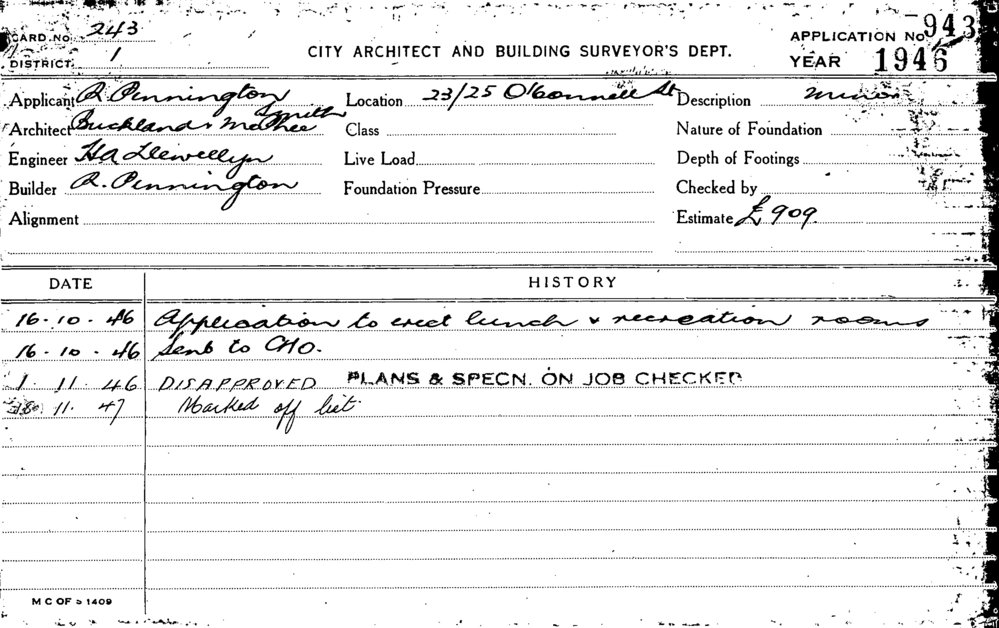 CARD No. 243
DISTRICT 1
CITY ARCHITECT AND BUILDING SURVEYOR'S DEPT.
APPLICATION No. 943
YEAR 1946
Applicant R. Pennington
Location 23/25 O'Connell St
Description Minor
Architect Buckland Smith & McPhee
Class
Nature of Foundation
Engineer H A Llewellyn
Live Load
Depth of Footings
Builder R. Pennington
Foundation Pressure
Checked by
Alignment
Estimate £909.
DATE HISTORY
16.10.46 Application to erect lunch & recreation rooms
16.10.46 Sent to CHO.
1 11 46 DISAPPROVED PLANS & SPECN. ON JOB CHECKED
11. 47 Marked off list.
M C OF S 1409